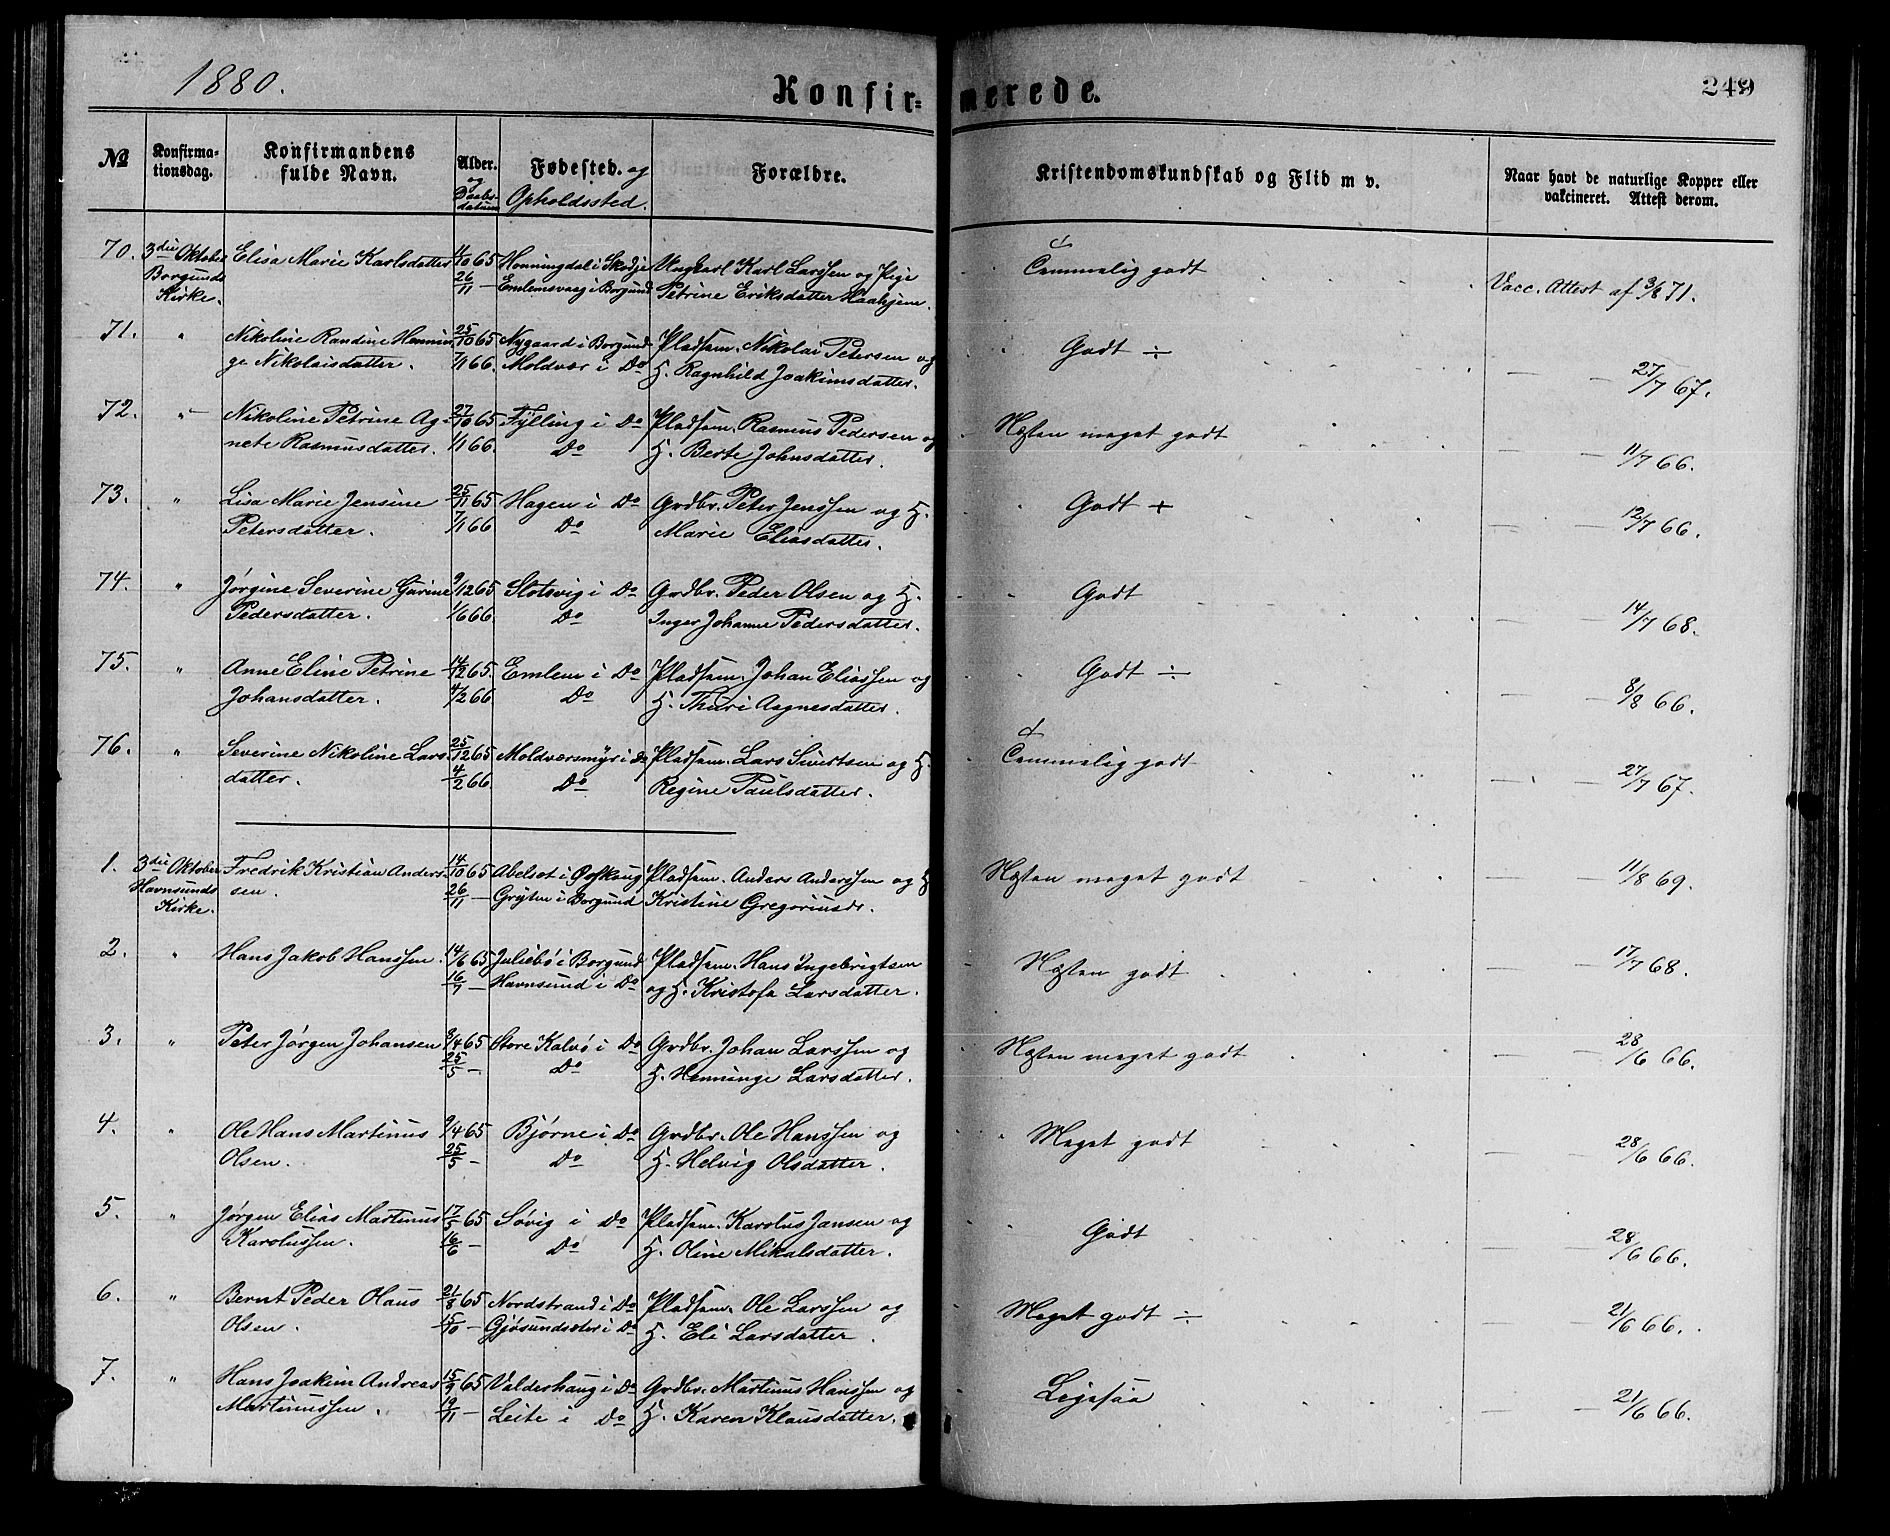 1880.
Konfir=
merede.
249
No
Konfirma-
tionsdag.
Konfirmandens
fulde Navn.
Alder.
og
Daabs-
datum
Fødested. og
Opholdssted.
Forældre.
Kristendomskundskab og Flid m v.
Naar havt de naturlige Kopper eller
vakcineret. Attest derom.
70. 3die Oktober Elisa Marie Karlsdatter 4/10 65 Honningdal i Skodje Ungkarl Karl Larssen og Pige Temmelig godt Vacc. Attest af 3/8 71.
Borgunds 26/11 — Emlemsvaag i Borgund Petrine Eriksdatter
Kirke.
71. " Nikoline Randine Hennin- 25/10 65 Nygaard i Borgund Pladsem. Nikolai Petersen og Godt ÷ — — 27/7 67.
ge Nikolaisdatter. 7/1 66. Moldvær i Do H. Ragnhild Joakimsdatter.
72. " Nikoline Petrine Ag- 27/10 65 Fylling i Do Pladsem. Rasmus Pedersen og Næsten meget godt — — 11/7 66.
nete Rasmusdatter. 1/1 66. Do H. Berte Johnsdatter.
73. " Lisa Marie Jensine 25/11 65 Hagen i Do Grdbr. Peter Jenssen og H. Godt + — — 12/7 66.
Petersdatter. 7/1 66 Do Marie Eliasdatter.
74. " Jørgine Severine Gurine 9/12 65 Slotsvig i Do Grdbr. Peder Olsen og H. Godt — — 14/7 68.
Pedersdatter. 1/6 66 Do Inger Johanne Pedersdatter.
75. " Anne Eline Petrine 14/12 65. Emlem i Do Pladsem. Johan Eliassen og Godt ÷ — — 8/8 66.
Johansdatter. 4/2 66 Do H. Thuri Aagnesdatter.
76. " Severine Nikoline Lars- 25/12 65 Moldværsmyr i Do Pladsem. Lars Sivertsen og H. Temmelig godt — — 27/7 67.
datter. 4/2 66. Do Regine Paulsdatter.
1. 3die Oktober Fredrik Kristian Anders- 14/10 65 Abelset i Ørskoug Pladsem. Anders Anderssen og H Næsten meget godt — — 11/8 69.
Havnsunds sen. 26/11 — Gryten i Borgund Kristine Gregoriusdr.
Kirke.
2. " Hans Jakob Hanssen. 14/6 65 Juliebø i Borgund Pladsem. Hans Ingebrigtsen Næsten godt — — 17/7 68.
16/7 — Havnsund i Do og H. Kristofa Larsdatter.
3. " Peter Jørgen Johansen 8/4 65 Store Kalvø i Do Grdbr. Johan Larssen og Næsten meget godt — — 28/6 66.
25/5 — Do H. Henninge Larsdatter.
4. " Ole Hans Martinus 9/4 65 Bjørne i Do Grdbr. Ole Hanssen og Meget godt — — 28/6 66.
Olsen. 25/5 — Do H. Helvig Olsdatter.
5. " Jørgen Elias Martinus 17/5 65 Søvig i Do Pladsem. Karolus Jansen og Godt — — 28/6 66.
Karolussen. 16/6 — Do H. Oline Mikalsdatter.
6. " Bernt Peder Olaus 21/8 65 Nordstrand i Do Pladsem. Ole Larssen og Meget godt ÷ — — 21/6 66.
Olsen. 15/10 — Gjøsundsæter i Do H. Eli Larsdatter.
7. " Hans Joakim Andreas 15/9 65 Valderhaug i Do Grdbr. Martinus Hanssen og Ligesaa — — 21/6 66.
Martinussen. 19/11 — Leite i Do H. Karen Klausdatter.